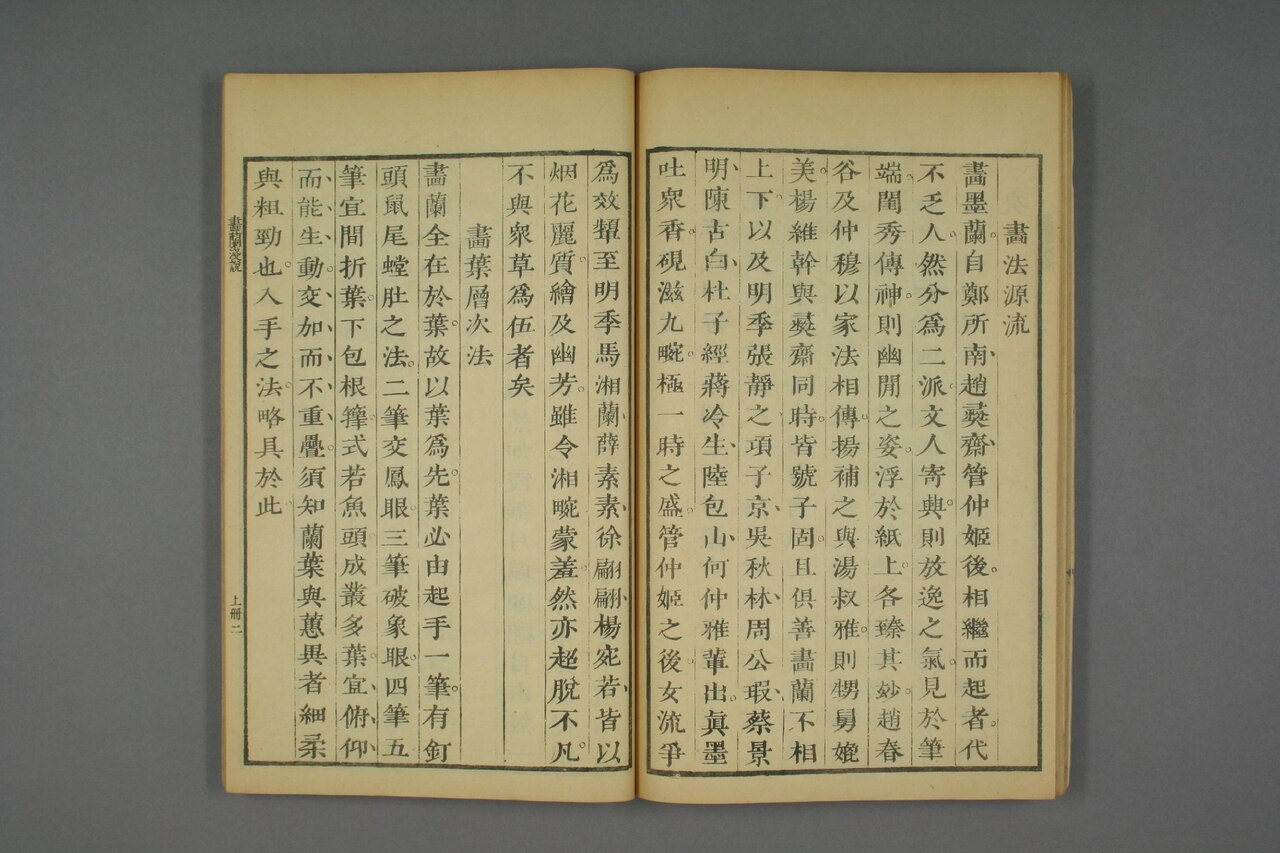 畫法源流
畫墨蘭。自鄭所南、趙彝齋、管仲姬後。相繼而起者。代
不乏人。然分為二派。文人寄興。則放逸之氣。見於筆
端。閨秀傳神。則幽閒之姿。浮於紙上。各臻其妙。趙春
谷及仲穆以家法相傳。揚補之與湯叔雅。則甥舅媲
美。楊維幹與彝齋同時。皆號子固。且俱善畫蘭不相
上下。以及明季張靜之、項子京、吳秋林、周公瑕、蔡景
明、陳古白、杜子經、蔣冷生、陸包山、何仲雅輩出。眞墨
吐衆香。硯滋九畹。極一時之盛。管仲姬之後。女流爭
爲效顰。至明季馬湘蘭、薛素素、徐翩翩、楊宛若、皆以
烟花麗質。繪及幽芳。雖令湘畹蒙羞。然亦超脫不凡。
不與衆草爲伍者矣
畫葉層次法
畫蘭全在於葉。故以葉爲先。葉必由起手一筆。有釘
頭鼠尾螳肚之法。二筆交鳳眼。三筆破象眼。四筆五
筆宜間折葉。下包根籜。式若魚頭。成叢多葉。宜俯仰、
而能生動、交加而不重疊。須知蘭葉與蕙異者細柔
與粗勁也。入手之法。略具於此。
畫蘭淺說
上冊二